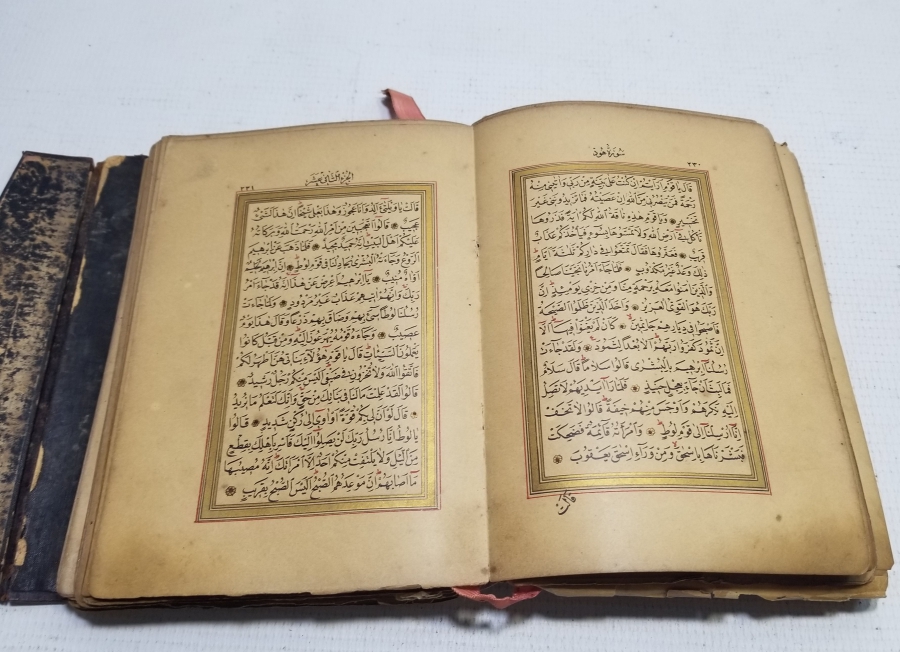 سُورَةُ هُود
٢٣٠
قَالَ يَا قَوْمِ اَرَاَيْتُمْ اِنْ كُنْتُ عَلٰى بَيِّنَةٍ مِنْ رَبّ۪ي وَاٰتٰين۪ي مِنْهُ
رَحْمَةً فَمَنْ يَنْصُرُن۪ي مِنَ اللّٰهِ اِنْ عَصَيْتُهُ فَمَا تَز۪يدُونَن۪ي غَيْرَ
تَخْس۪يرٍ وَيَا قَوْمِ هٰذِه۪ نَاقَةُ اللّٰهِ لَكُمْ اٰيَةً فَذَرُوهَا
تَأْكُلْ ف۪ي اَرْضِ اللّٰهِ وَلَا تَمَسُّوهَا بِسُوءٍ فَيَأْخُذَكُمْ عَذَابٌ
قَر۪يبٌ فَعَقَرُوهَا فَقَالَ تَمَتَّعُوا ف۪ي دَارِكُمْ ثَلٰثَةَ اَيَّامٍ
ذٰلِكَ وَعْدٌ غَيْرُ مَكْذُوبٍ فَلَمَّا جَاءَ اَمْرُنَا نَجَّيْنَا صَالِحًا
وَالَّذ۪ينَ اٰمَنُوا مَعَهُ بِرَحْمَةٍ مِنَّا وَمِنْ خِزْيِ يَوْمِئِذٍ اِنَّ
رَبَّكَ هُوَ الْقَوِيُّ الْعَز۪يزُ وَاَخَذَ الَّذ۪ينَ ظَلَمُوا الصَّيْحَةُ
فَاَصْبَحُوا ف۪ي دِيَارِهِمْ جَاثِم۪ينَ كَاَنْ لَمْ يَغْنَوْا ف۪يهَا اَلَا
اِنَّ ثَمُودَ كَفَرُوا رَبَّهُمْ اَلَا بُعْدًا لِثَمُودَ وَلَقَدْ جَاءَتْ
رُسُلُنَا اِبْرٰه۪يمَ بِالْبُشْرٰى قَالُوا سَلَامًا قَالَ سَلَامٌ
فَمَا لَبِثَ اَنْ جَاءَ بِعِجْلٍ حَن۪يذٍ فَلَمَّا رَاٰ اَيْدِيَهُمْ لَا تَصِلُ
اِلَيْهِ نَكِرَهُمْ وَاَوْجَسَ مِنْهُمْ خ۪يفَةً قَالُوا لَا تَخَفْ
اِنَّا اُرْسِلْنَا اِلٰى قَوْمِ لُوطٍ وَامْرَاَتُهُ قَائِمَةٌ فَضَحِكَتْ
فَبَشَّرْنَاهَا بِاِسْحٰقَ وَمِنْ وَرَاءِ اِسْحٰقَ يَعْقُوبَ
قالت
الجزء الثانى عشر
٢٣١
قَالَتْ يَا وَيْلَتٰى ءَاَلِدُ وَاَنَا عَجُوزٌ وَهٰذَا بَعْل۪ي شَيْخًا اِنَّ هٰذَا لَشَيْءٌ
عَج۪يبٌ قَالُوا اَتَعْجَب۪ينَ مِنْ اَمْرِ اللّٰهِ رَحْمَتُ اللّٰهِ وَبَرَكَاتُهُ
عَلَيْكُمْ اَهْلَ الْبَيْتِ اِنَّهُ حَم۪يدٌ مَج۪يدٌ فَلَمَّا ذَهَبَ عَنْ اِبْرٰه۪يمَ
الرَّوْعُ وَجَاءَتْهُ الْبُشْرٰى يُجَادِلُنَا ف۪ي قَوْمِ لُوطٍ اِنَّ اِبْرٰه۪يمَ لَحَل۪يمٌ
اَوَّاهٌ مُن۪يبٌ يَا اِبْرٰه۪يمُ اَعْرِضْ عَنْ هٰذَا اِنَّهُ قَدْ جَاءَ اَمْرُ
رَبِّكَ وَاِنَّهُمْ اٰت۪يهِمْ عَذَابٌ غَيْرُ مَرْدُودٍ وَلَمَّا جَاءَتْ
رُسُلُنَا لُوطًا س۪يءَ بِهِمْ وَضَاقَ بِهِمْ ذَرْعًا وَقَالَ هٰذَا يَوْمٌ
عَص۪يبٌ وَجَاءَهُ قَوْمُهُ يُهْرَعُونَ اِلَيْهِ وَمِنْ قَبْلُ كَانُوا
يَعْمَلُونَ السَّيِّـَٔاتِ قَالَ يَا قَوْمِ هٰؤُلَاءِ بَنَات۪ي هُنَّ اَطْهَرُ لَكُمْ
فَاتَّقُوا اللّٰهَ وَلَا تُخْزُونِ ف۪ي ضَيْف۪ي اَلَيْسَ مِنْكُمْ رَجُلٌ رَش۪يدٌ
قَالُوا لَقَدْ عَلِمْتَ مَا لَنَا ف۪ي بَنَاتِكَ مِنْ حَقٍّ وَاِنَّكَ لَتَعْلَمُ مَا نُر۪يدُ
قَالَ لَوْ اَنَّ ل۪ي بِكُمْ قُوَّةً اَوْ اٰو۪ي اِلٰى رُكْنٍ شَد۪يدٍ قَالُوا
يَا لُوطُ اِنَّا رُسُلُ رَبِّكَ لَنْ يَصِلُوا اِلَيْكَ فَاَسْرِ بِاَهْلِكَ بِقِطْعٍ
مِنَ الَّيْلِ وَلَا يَلْتَفِتْ مِنْكُمْ اَحَدٌ اِلَّا امْرَاَتَكَ اِنَّهُ مُص۪يبُهَا
مَا اَصَابَهُمْ اِنَّ مَوْعِدَهُمُ الصُّبْحُ اَلَيْسَ الصُّبْحُ بِقَر۪يبٍ